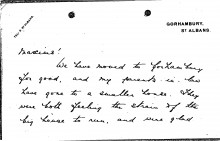 GORHAMBURY,
ST ALBANS.
Maxine!
We have moved to Gorhambury
for good, and my parents-in-law
have gone to a smaller house. They
were both feeling the strain of the
big house to run, and were glad